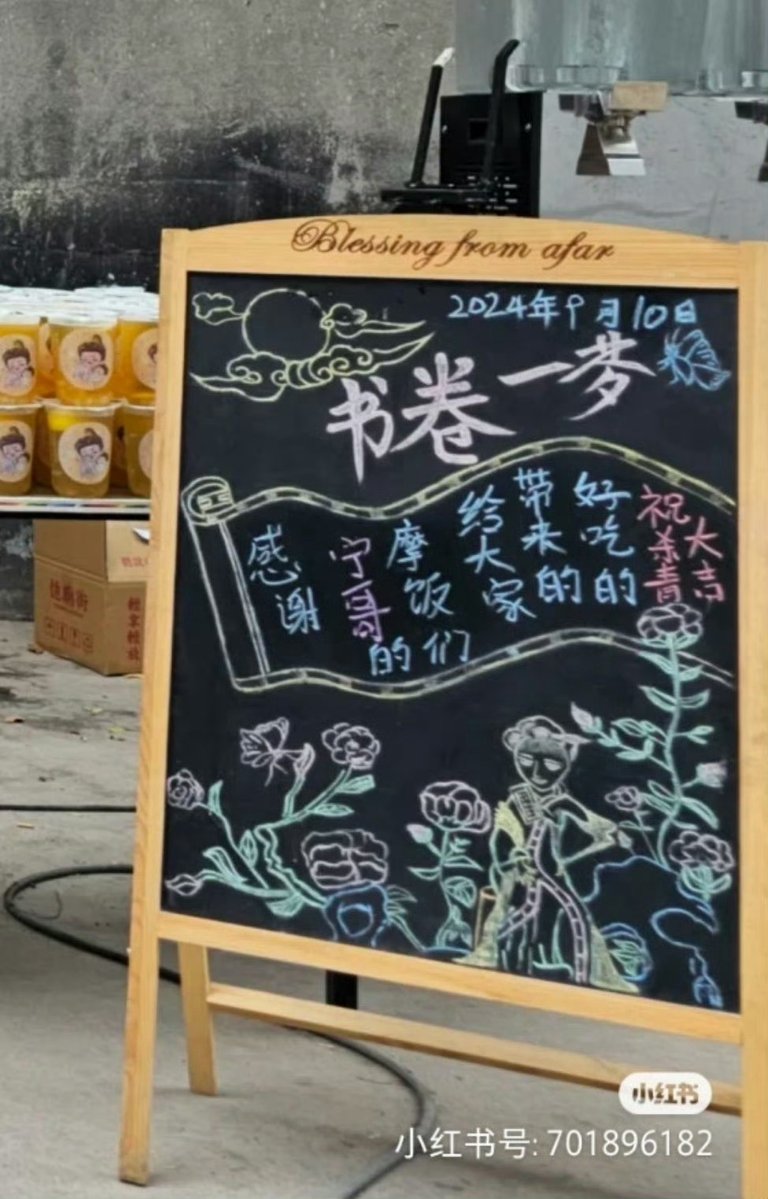 Blessing from afar
2024年9月10日
书卷一梦
感谢
宁哥的
摩饭们
给大家
带来的
好吃的
祝杀青
大吉
小红书
小红书号: 701896182